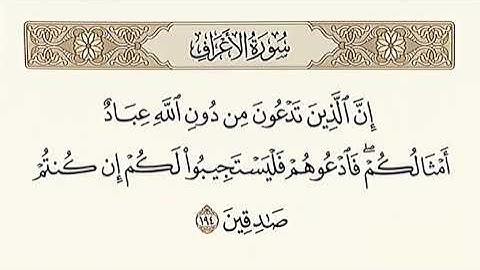 سُورَةُ الأَعْرَافِ
إِنَّ ٱلَّذِينَ تَدْعُونَ مِن دُونِ ٱللَّهِ عِبَادٌ
أَمْثَالُكُمْ ۖ فَٱدْعُوهُمْ فَلْيَسْتَجِيبُوا۟ لَكُمْ إِن كُنتُمْ
صَٰدِقِينَ ١٩٤